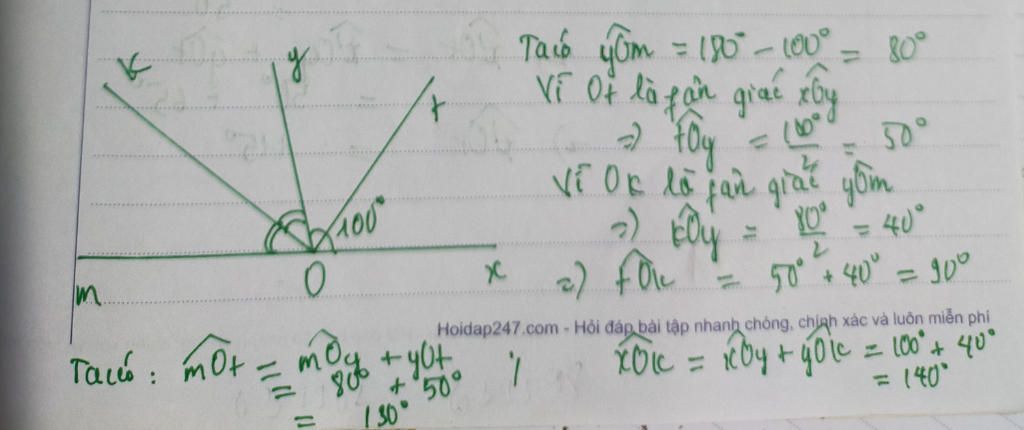 k
y
t
100°
m
O
x
Ta có yÔm = 180° - 100° = 80°
Vì Ot là fân giác xÔy
=> tÔy = 100°/2 = 50°
Vì Ok là fân giác yÔm
=> kÔy = 80°/2 = 40°
=> tÔk = 50° + 40° = 90°
Hoidap247.com - Hỏi đáp bài tập nhanh chóng, chính xác và luôn miễn phí
Ta có : mÔt = mÔy + yÔt ; xÔk = xÔy + yÔk = 100° + 40°
= 80° + 50° = 140°
= 130°